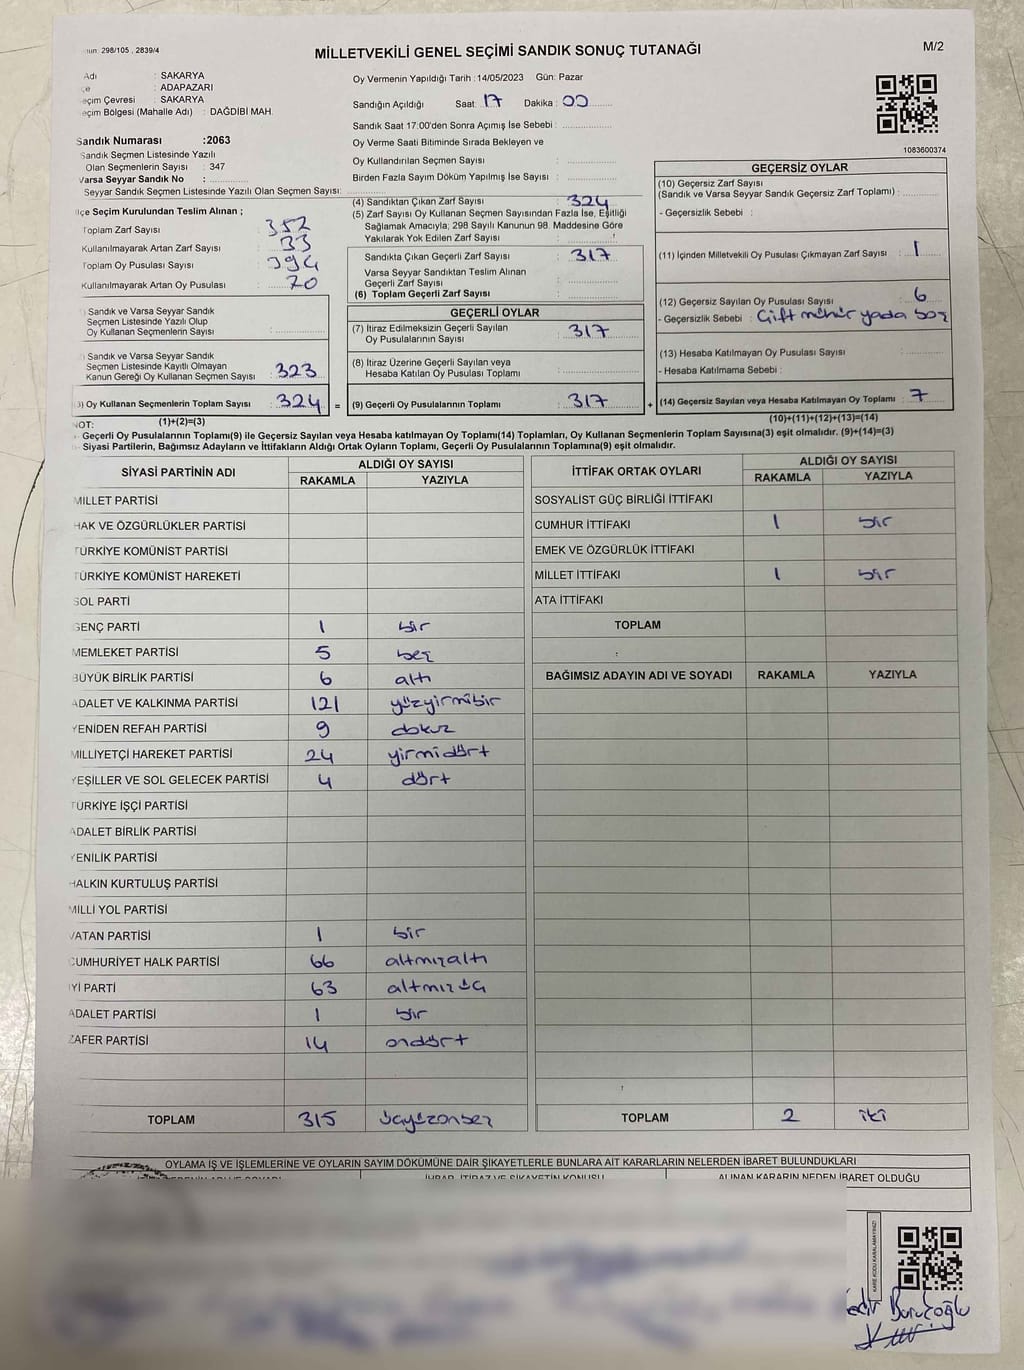 298/105 , 2839/4
MİLLETVEKİLİ GENEL SEÇİMİ SANDIK SONUÇ TUTANAĞI
M/2
Adı : SAKARYA
: ADAPAZARI
eçim Çevresi : SAKARYA
eçim Bölgesi (Mahalle Adı) : DAĞDİBİ MAH.
Oy Vermenin Yapıldığı Tarih :14/05/2023 Gün: Pazar
Sandığın Açıldığı Saat: 17 Dakika : 00
Sandık Saat 17:00'den Sonra Açımış İse Sebebi :
Oy Verme Saati Bitiminde Sırada Bekleyen ve
Oy Kullandırılan Seçmen Sayısı :
Birden Fazla Sayım Döküm Yapılmış İse Sayısı :
1083600374
Sandık Numarası :2063
Sandık Seçmen Listesinde Yazılı
Olan Seçmenlerin Sayısı : 347
Varsa Seyyar Sandık No :
Seyyar Sandık Seçmen Listesinde Yazılı Olan Seçmen Sayısı:
lçe Seçim Kurulundan Teslim Alınan ;
Toplam Zarf Sayısı : 352
Kullanılmayarak Artan Zarf Sayısı : 33
Toplam Oy Pusulası Sayısı : 394
Kullanılmayarak Artan Oy Pusulası : 70
) Sandık ve Varsa Seyyar Sandık
Seçmen Listesinde Yazılı Olup
Oy Kullanan Seçmenlerin Sayısı :
) Sandık ve Varsa Seyyar Sandık
Seçmen Listesinde Kayıtlı Olmayan
Kanun Gereği Oy Kullanan Seçmen Sayısı : 323
3) Oy Kullanan Seçmenlerin Toplam Sayısı : 324 =
(4) Sandıktan Çıkan Zarf Sayısı : 324
(5) Zarf Sayısı Oy Kullanan Seçmen Sayısından Fazla İse, Eşitliği
Sağlamak Amacıyla; 298 Sayılı Kanunun 98. Maddesine Göre
Yakılarak Yok Edilen Zarf Sayısı :
Sandıkta Çıkan Geçerli Zarf Sayısı : 317
Varsa Seyyar Sandıktan Teslim Alınan
Geçerli Zarf Sayısı :
(6) Toplam Geçerli Zarf Sayısı :
GEÇERLİ OYLAR
(7) İtiraz Edilmeksizin Geçerli Sayılan
Oy Pusulalarının Sayısı : 317
(8) İtiraz Üzerine Geçerli Sayılan veya
Hesaba Katılan Oy Pusulası Toplamı :
(9) Geçerli Oy Pusulalarının Toplamı : 317 +
GEÇERSİZ OYLAR
(10) Geçersiz Zarf Sayısı
(Sandık ve Varsa Seyyar Sandık Geçersiz Zarf Toplamı) :
- Geçersizlik Sebebi :
(11) İçinden Milletvekili Oy Pusulası Çıkmayan Zarf Sayısı : 1
(12) Geçersiz Sayılan Oy Pusulası Sayısı : 6
- Geçersizlik Sebebi : Çift mühür yada boş
(13) Hesaba Katılmayan Oy Pusulası Sayısı :
- Hesaba Katılmama Sebebi :
(14) Geçersiz Sayılan veya Hesaba Katılmayan Oy Toplamı : 7
NOT: (1)+(2)=(3) (10)+(11)+(12)+(13)=(14)
Geçerli Oy Pusulalarının Toplamı(9) ile Geçersiz Sayılan veya Hesaba katılmayan Oy Toplamı(14) Toplamları, Oy Kullanan Seçmenlerin Toplam Sayısına(3) eşit olmalıdır. (9)+(14)=(3)
Siyasi Partilerin, Bağımsız Adayların ve İttifakların Aldığı Ortak Oyların Toplamı, Geçerli Oy Pusulalarının Toplamına(9) eşit olmalıdır.
SİYASİ PARTİNİN ADI ALDIĞI OY SAYISI
RAKAMLA YAZIYLA
MİLLET PARTİSİ
HAK VE ÖZGÜRLÜKLER PARTİSİ
TÜRKİYE KOMÜNİST PARTİSİ
TÜRKİYE KOMÜNİST HAREKETİ
SOL PARTİ
GENÇ PARTİ 1 bir
MEMLEKET PARTİSİ 5 beş
BÜYÜK BİRLİK PARTİSİ 6 altı
ADALET VE KALKINMA PARTİSİ 121 yüzyirmibir
YENİDEN REFAH PARTİSİ 9 dokuz
MİLLİYETÇİ HAREKET PARTİSİ 24 yirmidört
YEŞİLLER VE SOL GELECEK PARTİSİ 4 dört
TÜRKİYE İŞÇİ PARTİSİ
ADALET BİRLİK PARTİSİ
YENİLİK PARTİSİ
HALKIN KURTULUŞ PARTİSİ
MİLLİ YOL PARTİSİ
VATAN PARTİSİ 1 bir
CUMHURİYET HALK PARTİSİ 66 altmışaltı
İYİ PARTİ 63 altmışüç
ADALET PARTİSİ 1 bir
ZAFER PARTİSİ 14 ondört
TOPLAM 315 üçyüzonbeş
İTTİFAK ORTAK OYLARI ALDIĞI OY SAYISI
RAKAMLA YAZIYLA
SOSYALİST GÜÇ BİRLİĞİ İTTİFAKI
CUMHUR İTTİFAKI 1 bir
EMEK VE ÖZGÜRLÜK İTTİFAKI
MİLLET İTTİFAKI 1 bir
ATA İTTİFAKI
TOPLAM
BAĞIMSIZ ADAYIN ADI VE SOYADI RAKAMLA YAZIYLA
TOPLAM 2 iki
OYLAMA İŞ VE İŞLEMLERİNE VE OYLARIN SAYIM DÖKÜMÜNE DAİR ŞİKAYETLERLE BUNLARA AİT KARARLARIN NELERDEN İBARET BULUNDUKLARI
İHBAR, İTİRAZ VE ŞİKAYETİN KONUSU ALINAN KARARIN NEDEN İBARET OLDUĞU
KARE KODU KARALAMAYINIZ!